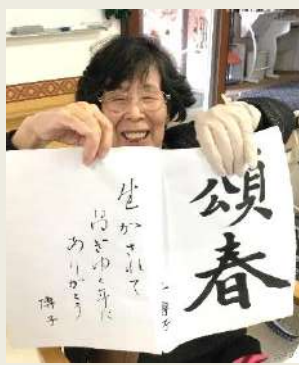 頌春
生かされて
過ぎゆく年に
ありがとう
博子